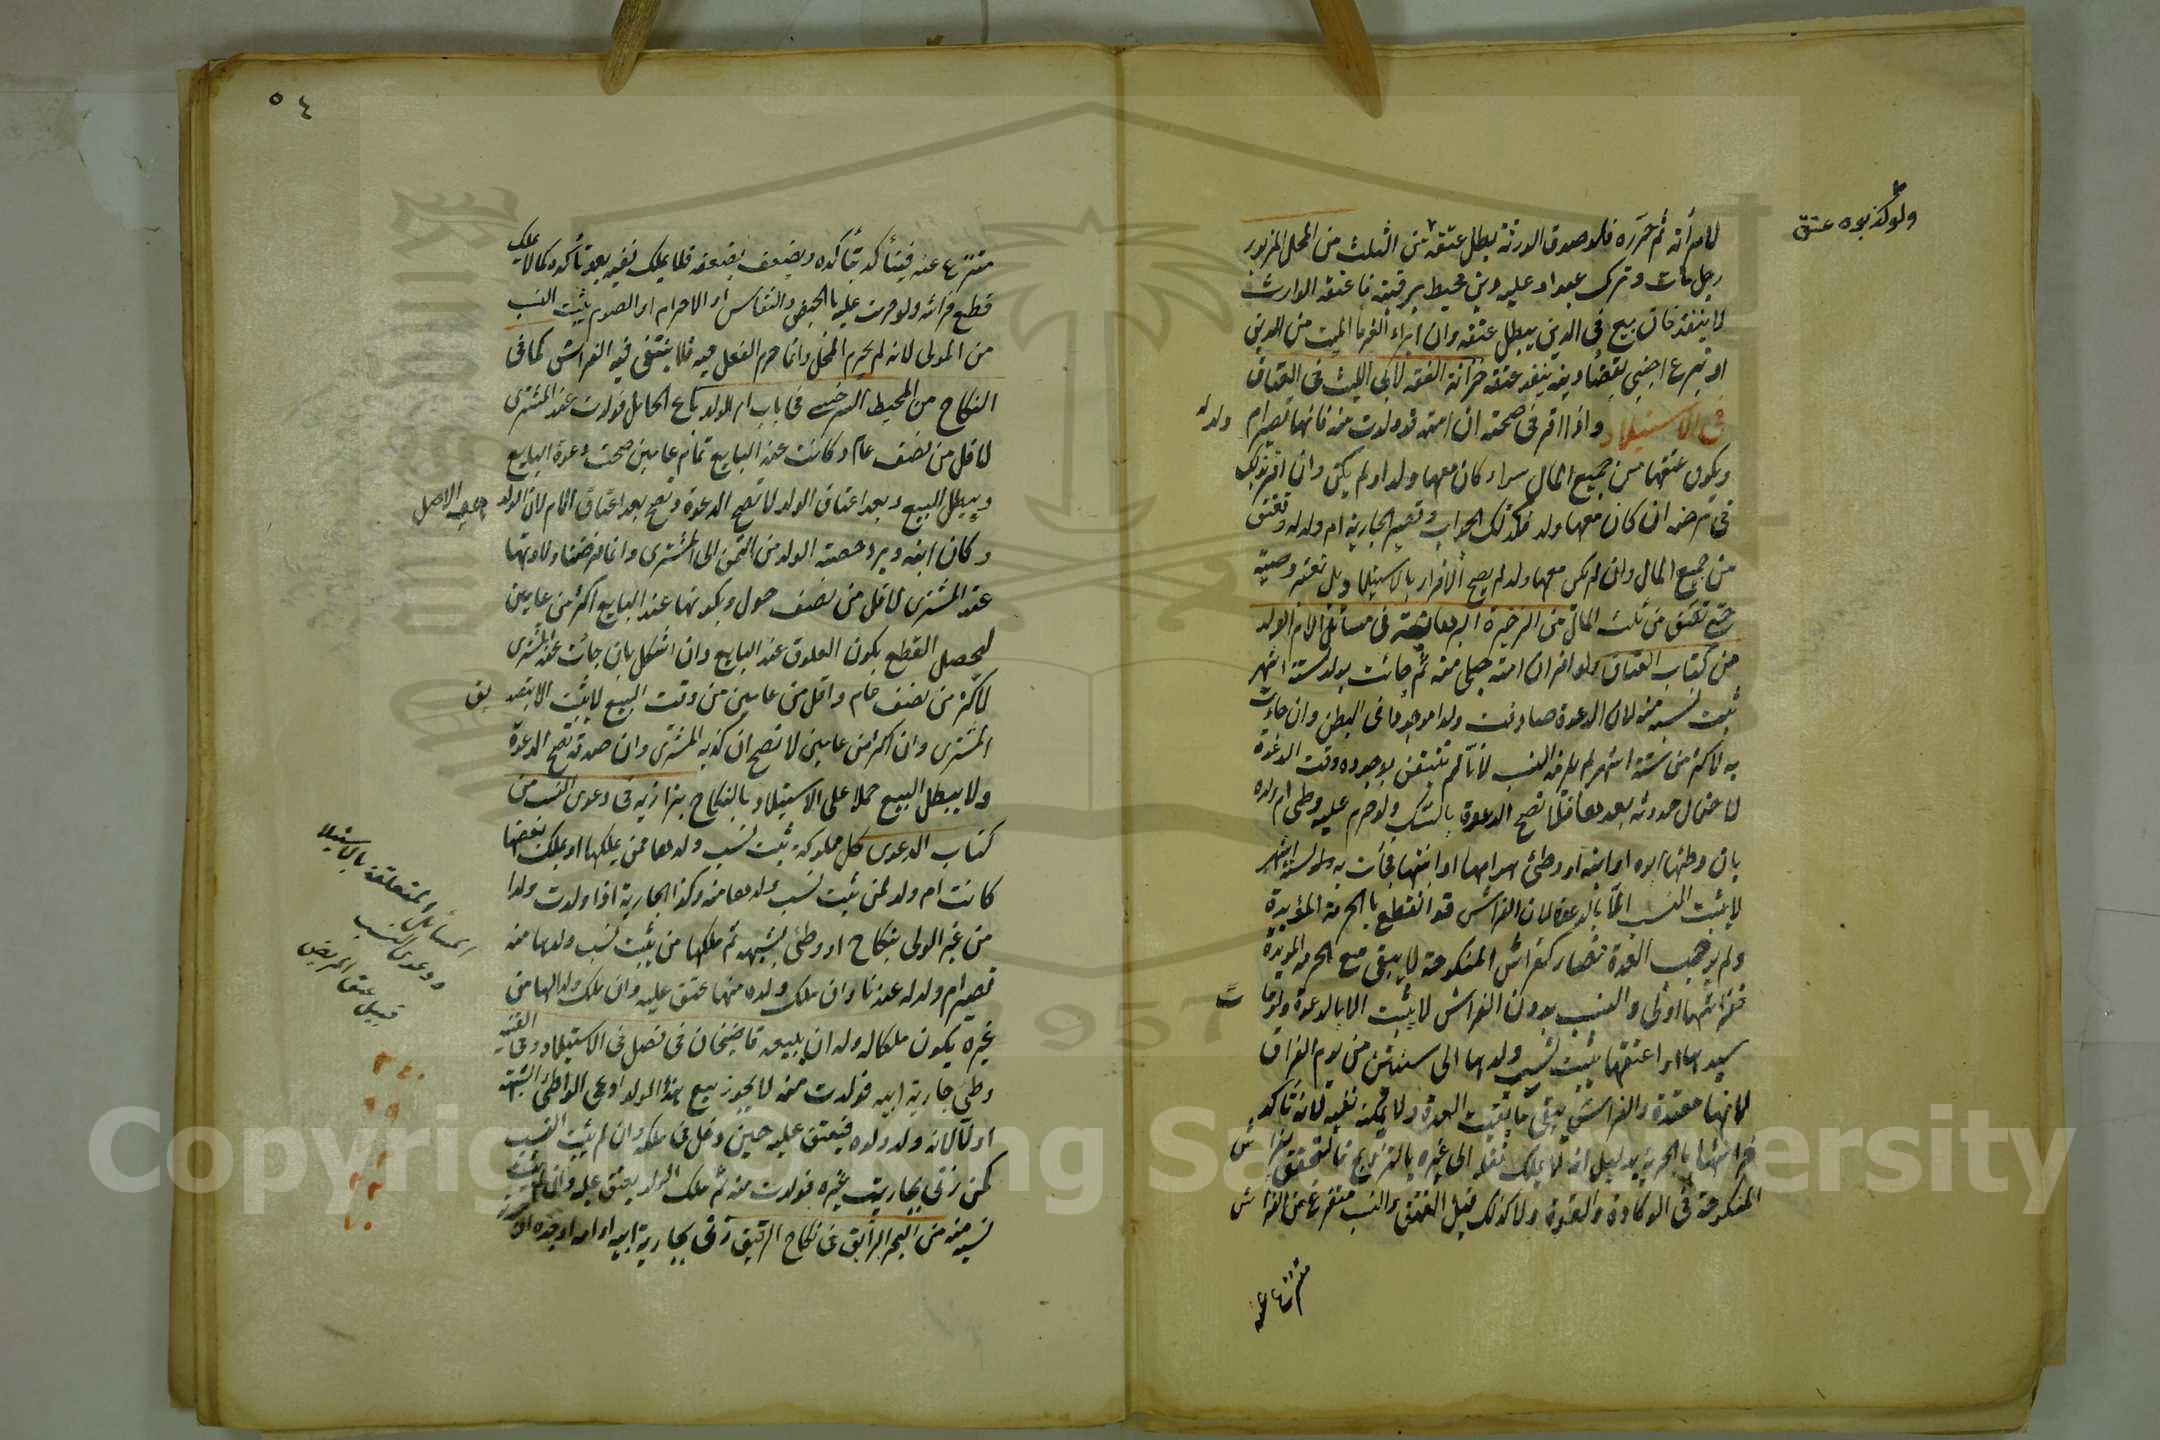 ولو كذبوه عتق
لامرأته ثم حرره فلو صدق الورثة بطل عتقه من الثلث من المحل المزبور
رجل مات وترك عبدا وعليه دين محيط برقبته فاعتقه الوارث
لا ينفذ فان بيع في الدين يبطل عتقه وان ابراء الغرما الميت من الدين
او تبرع اجنبي بقضاء دينه ينفذ عتقه خزانة الفقه لابي الليث في العتاق
في الاستيلاد واذا اقر في صحته ان امته قد ولدت منه فانها تصير ام ولد له
ويكون عتقها من جميع المال سواء كان معها ولد او لم يكن وان اقر بذلك
في مرضه ان كان معها ولد فكذلك الجواب وتصير الجارية ام ولد له وتعتق
من جميع المال وان لم يكن معها ولد لم يصح الاقرار بالاستيلاد بل تعتبر وصية
حتى تعتق من ثلث المال من الذخيرة البرهانية في مسائل الام الولد
من كتاب العتاق ولو اقر ان امته حبلى منه ثم جائت بولد ستة اشهر
ثبت نسبه منه لان الدعوة صادفت ولدا موجودا في البطن وان جاءت
به لاكثر من ستة اشهر لم يلزمه النسب لانا لم نتيقن بوجوده وقت الدعوة
لاحتمال حدوثه بعدها فلا تصح الدعوة بالشك ولو حرم عليه وطي ام ولده
بان وطئها ابوه او ابنه او وطئ هو امها او ابنتها فجأت به لستة اشهر
لا يثبت النسب الا بالدعوة لان الفراش قد انقطع بالحرمة المؤبدة
ولم يوجب العدة فصار كفراش المنكوحة لا يبقى مع الحرمة المؤبدة
ففراشها اولى والنسب بدون الفراش لا يثبت الا بالدعوة ولو مات
سيدها او اعتقها يثبت نسب ولدها الى سنتين من يوم الفراق
لانها معتدة والفراش يبقى ما بقيت العدة ولا يمكنه نفيه لانه تأكد
فراشها بالحرية بدليل انه لا يملك نقله الى غيره بالتزويج فالتحق بفراش
المنكوحة في الوكادة والقوة ولا كذلك قبل العتق والنسب متفرع عن الفراش
متفرع عنه
٥٤
متفرع عنه فيتأكد بتأكده ويضعف بضعفه فلا يملك نفيه بعد تأكده كما لا يملك
قطع فراشه ولو حرمت عليه بالحيض والنفاس او الاحرام او الصوم يثبت النسب
من المولى لانه لم يحرم المحل وانما حرم الفعل فيه فلا ينتفي فيه الفراش كما في
النكاح من المحيط السرخسي في باب ام الولد باع الحامل فولدت عند المشتري
لاقل من نصف عام وكانت عند البايع تمام عامين صحت دعوة البايع
ويبطل البيع وبعد اعتاق الولد لا تصح الدعوة وتصح بعد اعتاق الام لان الولد هو الاصل
وكان ابنه ويرد حصة الولد من الثمن الى المشتري وانما فرضنا ولادتها
عند المشتري لاقل من نصف حول وبكونها عند البايع اكثر من عامين
ليحصل القطع بكون العلوق عند البايع وان اشكل بان جائت عند المشتري
لاكثر من نصف عام واقل من عامين من وقت البيع لا يثبت الا بتصديق
المشتري وان اكثر من عامين لا تصح ان كذبه المشتري وان صدقه تصح الدعوة
ولا يبطل البيع حملا على الاستيلاد بالنكاح بزازيه في دعوى النسب من
كتاب الدعوى كل مملوكة ثبت نسب ولدها ممن يملكها او يملك بعضها
كانت ام ولد لمن ثبت نسب ولدها منه وكذا الجارية اذا ولدت ولدا
من غير المولى بنكاح او وطئ بشبهة ثم ملكها من يثبت نسب ولدها منه
تصير ام ولد له عندنا وان ملك ولده منها عتق عليه وان ملك ولدا لها من
غيره يكون ملكا له وله ان يبيعه قاضيخان في فصل في الاستيلاد وفي القنيه
وطئ جارية ابيه فولدت منه لا يجوز بيع هذا الولد ادعى الواطئ الشبهة
او لا لانه ولد ولده فيعتق عليه حين دخل في ملكه وان لم يثبت النسب
كمن زنى بجارية غيره فولدت منه ثم ملك الولد يعتق عليه وان لم يثبت
نسبه منه من البحر الرائق في نكاح الرقيق زنى بجارية ابيه او امه او جده او
المسائل المتعلقة بالاستيلاد
ودعوى النسب
قبيل عتق المريض
Copyright © King Saud University
1957